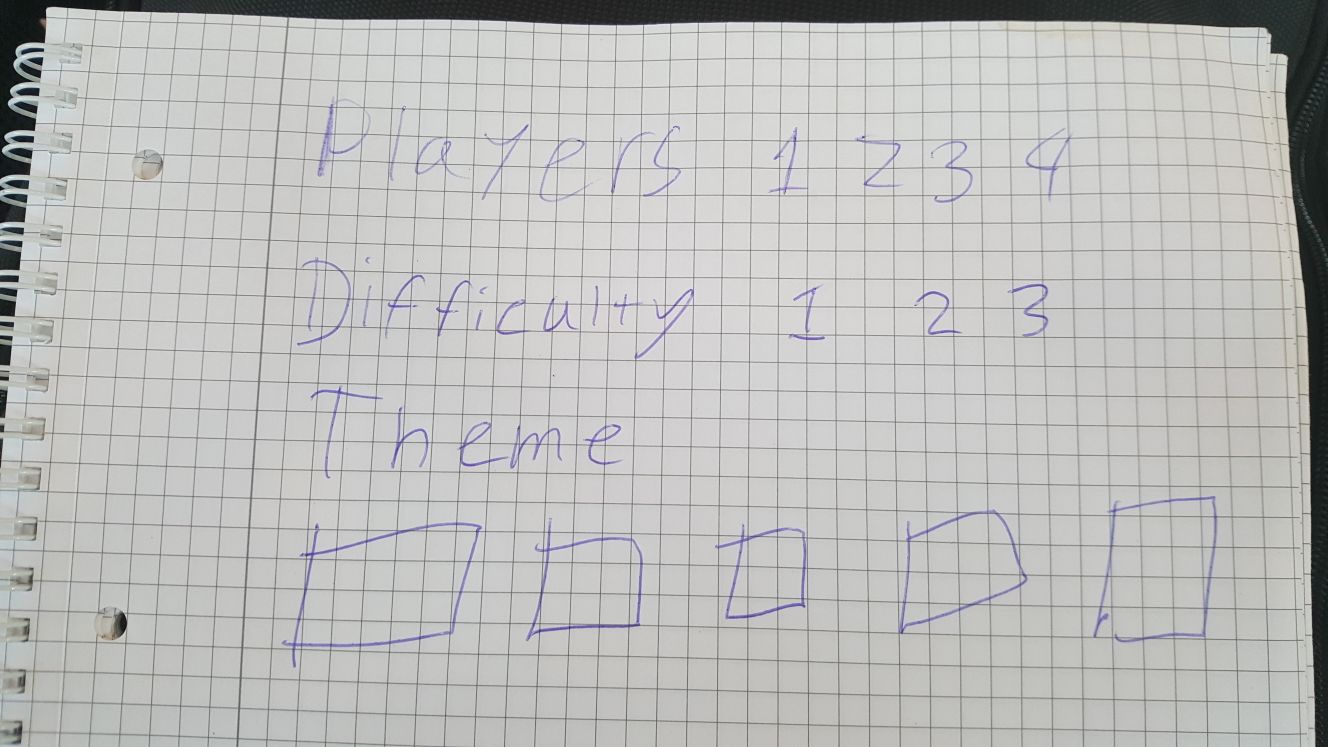 Players 1 2 3 4
Difficulty 1 2 3
Theme